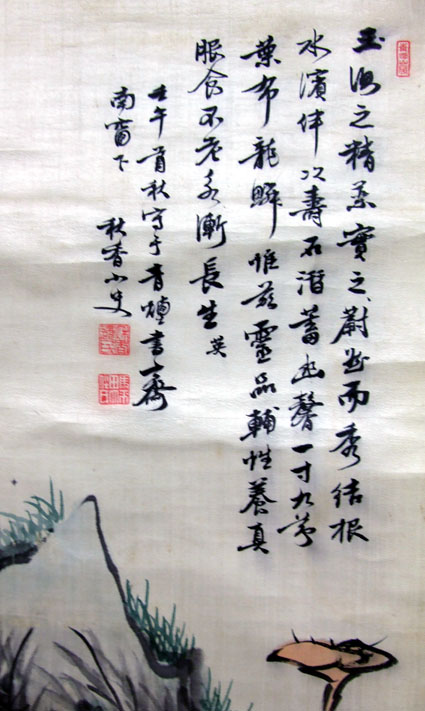 玉之精實之蔚而秀結根
水濱伴以壽石潛蓄幽馨一寸九節
葉布龍鱗惟茲靈品輔性養真
服食不老永漸長生英
壬午首秋寫于青書齋
南窗下 秋香小史